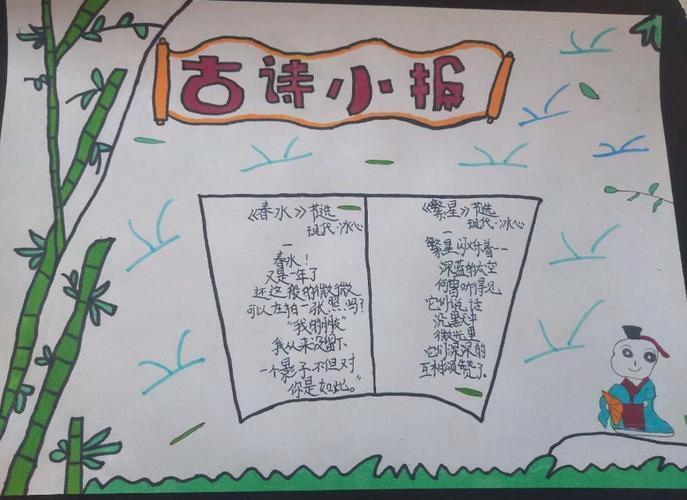 古诗小报
《春水》节选
现代·冰心
一
春水！
又是一年了
还这般的微微
可以在拍一张照吗？
"我的
我从来没留下
一个影子不但对
你是如此。"
《繁星》节选
现代·冰心
一
繁星闪烁着——
深蓝的太空
何曾听得见
它们说话
沉默中
微光里
它们深深的
互相颂赞了